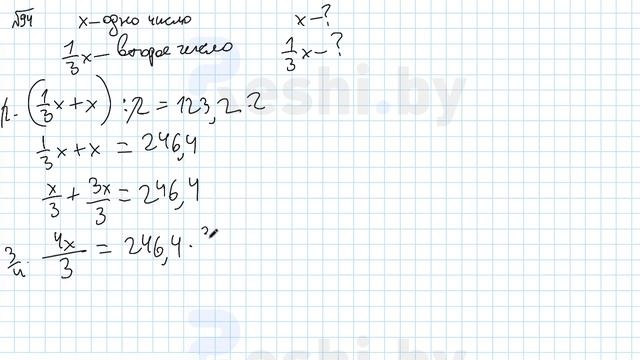 №94 x – одно число x – ?
1/3 x – второе число 1/3 x – ?
2 · (1/3 x + x) : 2 = 123,2 · 2
1/3 x + x = 246,4
x/3 + 3x/3 = 246,4
3/4 · 4x/3 = 246,4 ·
Reshi.by